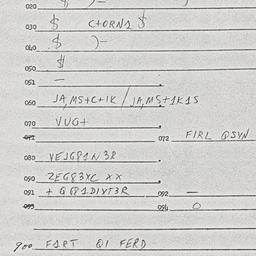 020
030 $ C+ORN1 $
040 $ )-
050 $
051 -
060 JA,MS+C+1K / JA,MS+1K1S
070 VUG+
072 FIRL QSYN
080 VEJG81N3R
090 ZEG83XC XX
091 + Q681DIYT3R 092 -
094 O
900 FART QI FERD